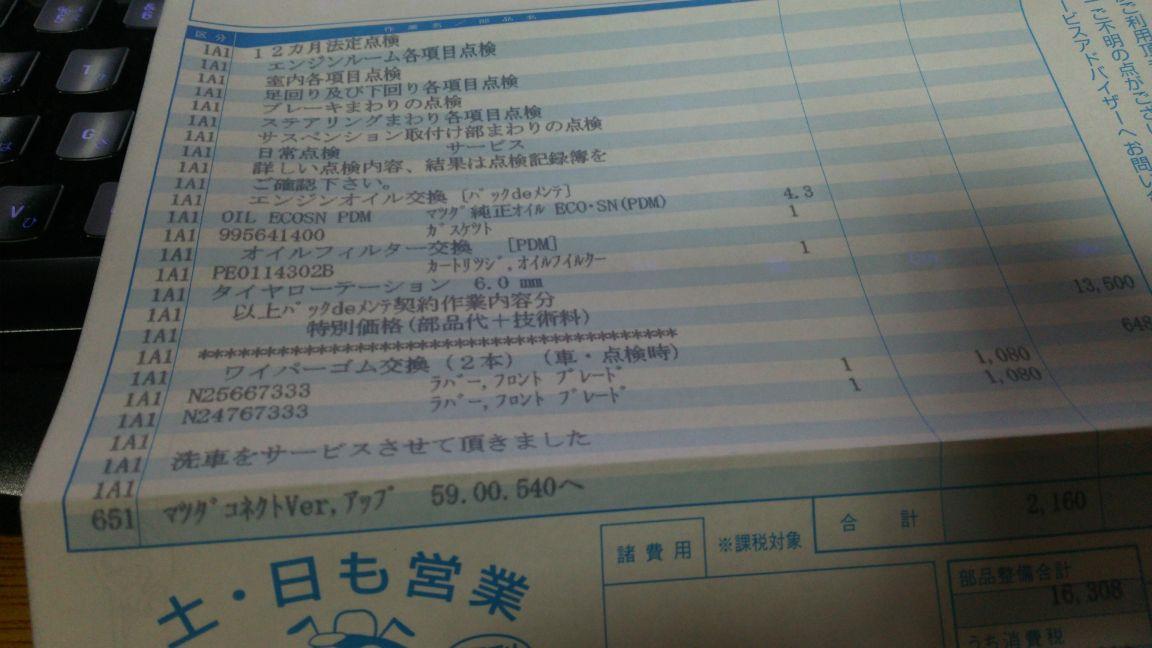 区分 作業名／部品名
1A1 12カ月法定点検
1A1 エンジンルーム各項目点検
1A1 室内各項目点検
1A1 足回り及び下回り各項目点検
1A1 ブレーキまわりの点検
1A1 ステアリングまわり各項目点検
1A1 サスペンション取付け部まわりの点検
1A1 日常点検 サービス
1A1 詳しい点検内容、結果は点検記録簿を
1A1 ご確認下さい。
1A1 エンジンオイル交換 [ﾊﾟｯｸdeﾒﾝﾃ]
1A1 OIL ECOSN PDM ﾏﾂﾀﾞ純正ｵｲﾙ ECO･SN(PDM) 4.3
1A1 995641400 ｶﾞｽｹﾂﾄ 1
1A1 オイルフィルター交換 [PDM]
1A1 PE0114302B ｶｰﾄﾘﾂｼﾞ,ｵｲﾙﾌｲﾙﾀｰ 1
1A1 タイヤローテーション 6.0㎜
1A1 以上ﾊﾟｯｸdeﾒﾝﾃ契約作業内容分
1A1 特別価格(部品代＋技術料) 13,500
1A1 ************************************
1A1 ワイパーゴム交換（2本）（車・点検時） 648
1A1 N25667333 ﾗﾊﾞｰ,ﾌﾛﾝﾄ ﾌﾞﾚｰﾄﾞ 1 1,080
1A1 N24767333 ﾗﾊﾞｰ,ﾌﾛﾝﾄ ﾌﾞﾚｰﾄﾞ 1 1,080
1A1
1A1 洗車をサービスさせて頂きました
1A1
651 ﾏﾂﾀﾞｺﾈｸﾄVer,ｱｯﾌﾟ 59.00.540へ
諸費用 ※課税対象 合計 2,160
部品整備合計
16,308
うち消費税
土・日も営業
ご不明の点がござい
ービスアドバイザーへお問い